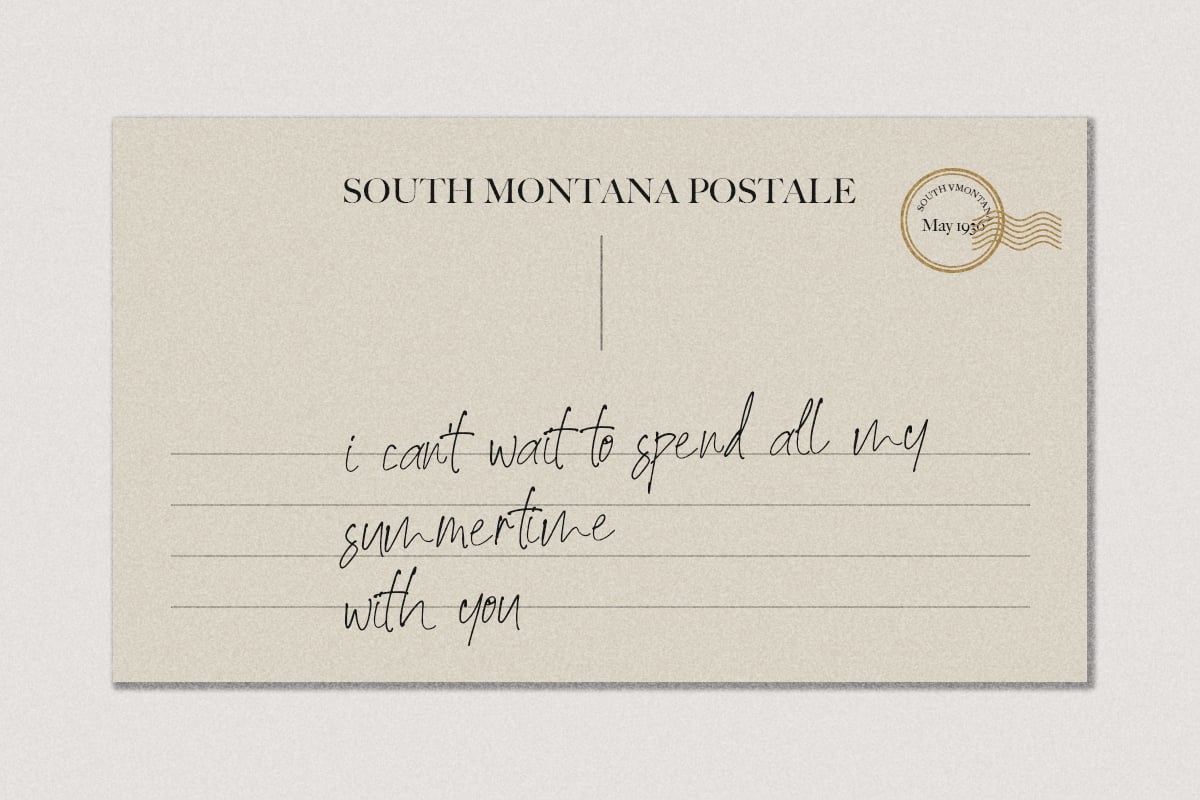 SOUTH MONTANA POSTALE
SOUTH VMONTANA
May 1936
i can't wait to spend all my
summertime
with you